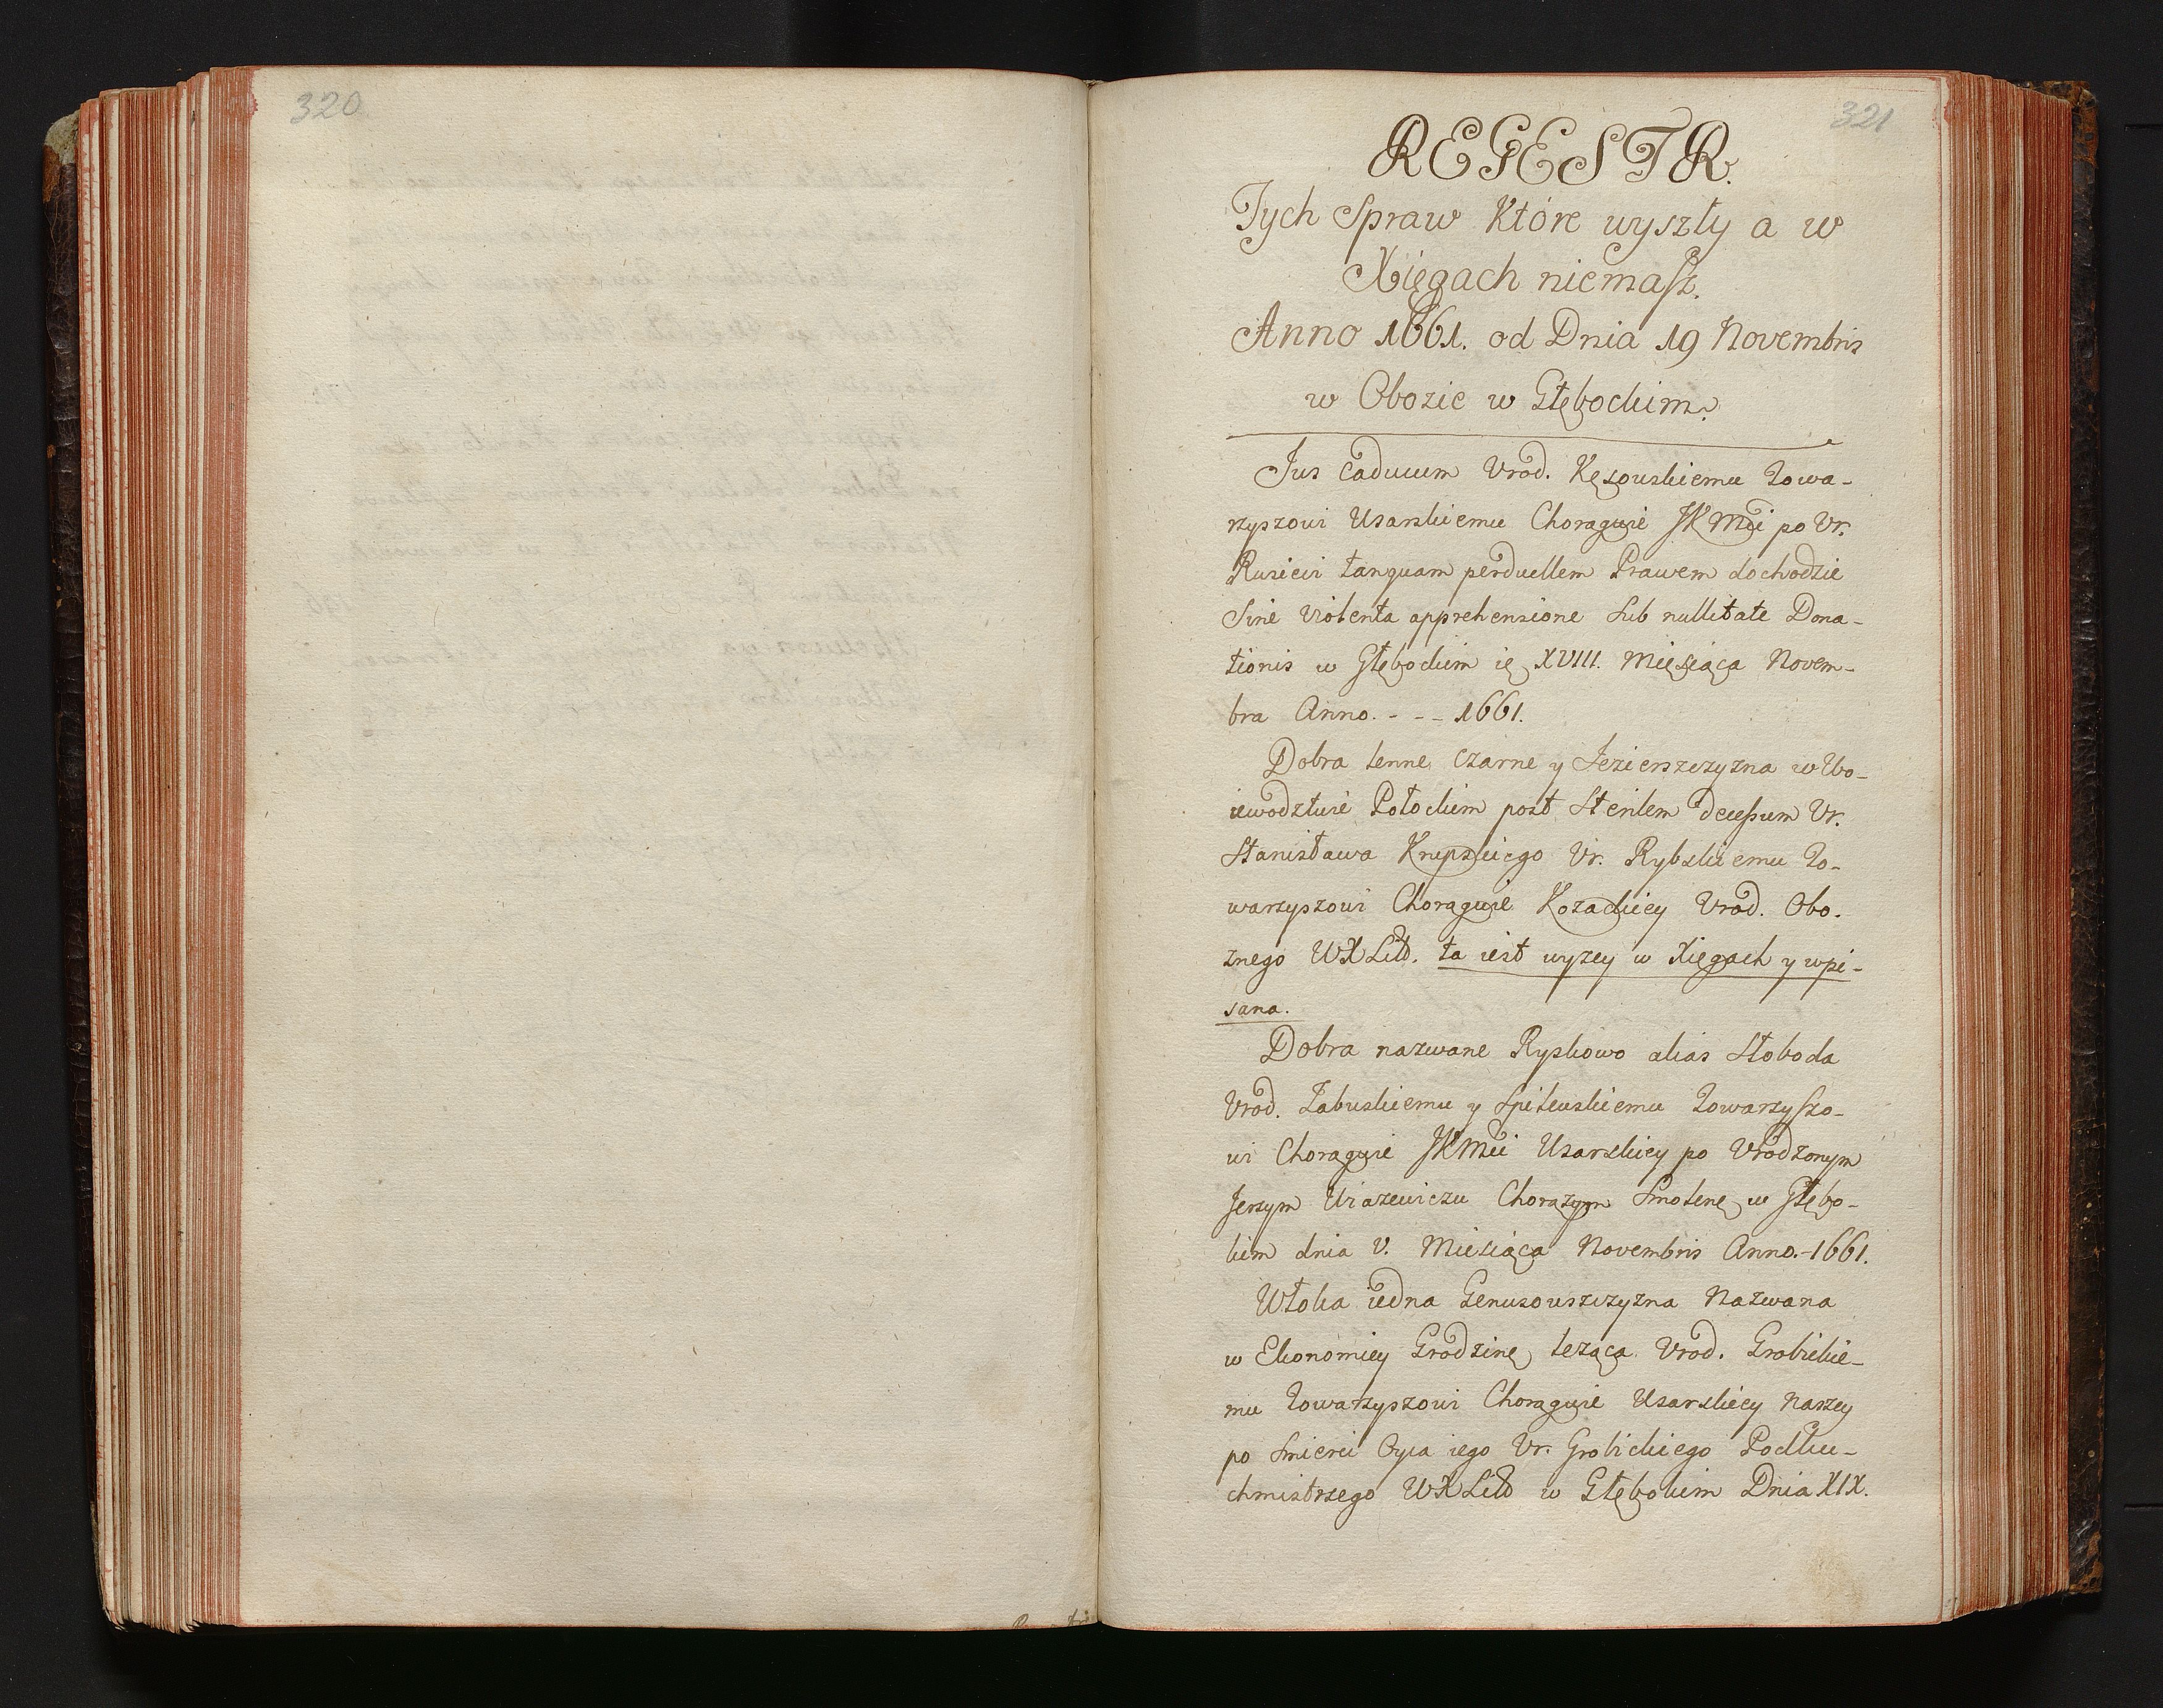 320
321
REGESTR.
Tych Spraw Które wyszły a w
Xięgach niemasz.
Anno 1661. od Dnia 19 Novembris
w Obozie w Głębockim.
Jus Caducum Vrod. Kęsowskiemu Towa-
rzyszowi Usarskiemu Chorągwie JKMći po Vr.
Rusieckim tanquam perduellem Prawem dochodzie
Sine violenta apprehensione sub nullitate Dona-
tionis w Głębockim ię XVIII. Miesiąca Novem-
bra Anno. - - - 1661.
Dobra lenne Czarne y Jezierszczyzna w Wo-
iewodztwie Połockim post Sterilem decessum Vr.
Stanisława Krupskiego Vr. Rybskiemu To-
warzyszowi Chorągwie Kozackiey Vrod. Obo-
znego WXLitt. ta iest wyzey w Xięgach y wpi-
sana.
Dobra nazwane Ryskowo alias Słoboda
Vrod. Zabuskiemu y Spitewskiemu Towarzyszo-
wi Chorągwie JKMći Usarskiey po Vrodzonym
Jerzym Wiazewiczu Chorązym Smolenę w Głębo-
kim dnia V. Miesiąca Novembris Anno.-1661.
Włoka iedna Genusowszczyzna Nazwana
w Ekonomiey Grodzinę leząca Vrod. Grobickie-
mu Towarzyszowi Chorągwie Usarskiey Naszey
po Smierci Oyca iego Vr. Grobickiego Podku-
chmistrzego WXLitt w Głębokim Dnia XIX.